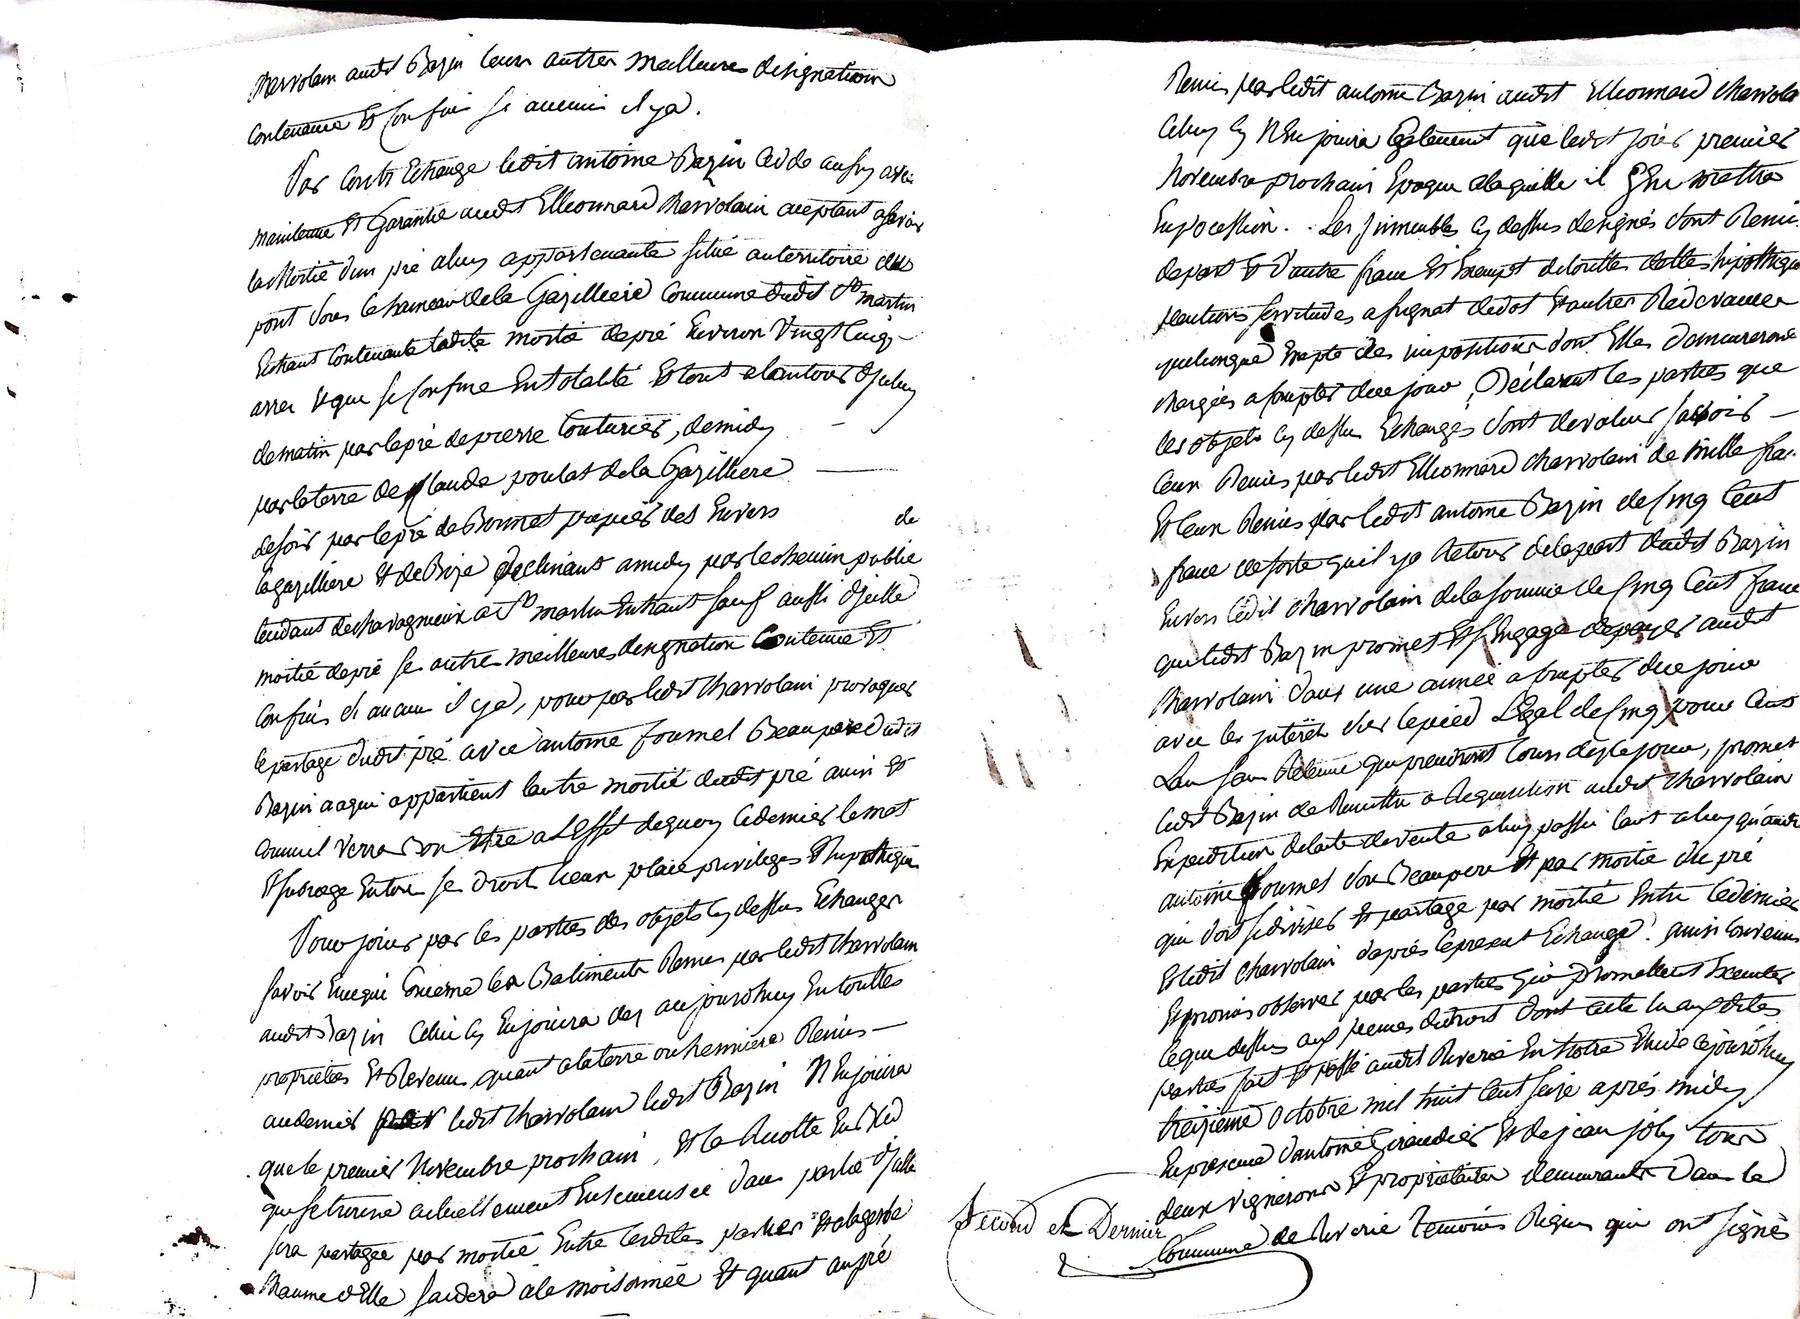 Charvolain audit Bazin leurs autres meilleures designations
contenance et confins si aucuns il y a.
Par contr'Echange ledit antoine Bazin cede aussy avec
maintenue et Garantie audit Elleonnard Charvolain aceptant asavoir
la Moitié d'un pré aluy appartenante situé au territoire du
pont sous le hameau de la Gazilliere Commune dudit St martin
Enhaut Contenante ladite moitié de pré Environ Vingt Cinq
arres et que se Confine En totalité Et tout alantour d'iceluy
de matin par le pré de pierre Couturier, de midy
par la terre de Claude poulat de la Gazilliere
de soir par le pré de Bonnet des Envers de
la gazilliere et de Bize declinant a midy par le chemin public
tendant de chavagnieux a St martin Enhaut sauf aussi d'icelle
moitié de pré se autres meilleures designation Contenue Et
Confins si aucuns il y a, pour par ledit Charvolain provoquer
le partage dudit pré avec antoine fournel Beaupere dudit
Bazin a qui appartient l'autre moitié dudit pré ainsi et
comme il verra bon Etre a L'Effet de quoy ce dernier le met
Et subroge En tous ses droits lieux place privileges Et hipotheques
Pour jouir par les parties des objets cy dessus Echangés
savoir En ce qui Concerne les Batiments Remis par ledit Charvolain
audit Bazin Celui cy En jouira des aujourd'huy En touttes
proprietés Et Revenus quant a la terre ou hermiere Remis
au dernier par ledit Charvolain ledit Bazin N'En jouira
que le premier Novembre prochain, Et la Recolte En bled
qui se trouve actuellement Ensemensée dans partie d'icelle
sera partagée par moitié Entre lesdites parties Et
Chaume d'Elle a la moisonnée Et quant au pré
Remis par ledit antoine Bazin audit Elleonnard Charvolain
Celuy cy N'En jouira Egalement que ledit jour premier
Novembre prochain Epoque a laquelle il
En pocession. Les Immeubles cy dessus designés sont Remis
de part Et d'autre franc Et Exempt de touttes dettes hipotheques
pentions servitudes asignat de dot Et autres Redevances
quelconque Exepté des impositions dont Elles demeureront
chargées a compter de ce jour, Déclarent les parties que
les objets cy dessus Echangés sont de valeur savoir
Ceux Remis par ledit Elleonnard Charvolain de mille francs
Et Ceux Remis par ledit antoine Bazin de Cinq Cent
francs de sorte qu'il y a Retour de la part dudit Bazin
Envers ledit Charvolain de la somme de Cinq Cent francs
que ledit Bazin promet Et s'Engage de payer audit
Charvolain dans une année a compter de ce jour
avec les intérêts sur le pied Légal de Cinq pour Cent
L'an sans Retenue qui prendront Cours des ce jour, promet
ledit Bazin de Remettre a Requisition audit Charvolain
Expedition de l'acte de vente a luy passé tant a luy qu'audit
antoine fournel son Beaupere Et par moitié du pré
qui doit se diviser Et partage par moitié Entre ce dernier
Et ledit Charvolain d'après le present Echange. ainsi Convenu
Et promis observer par les parties qui promettent Executer
ce que dessus aux peines de droit dont acte lu aux dites
parties fait Et passé audit Riverie En Notre Etude ce jourd'huy
treizieme Octobre mil huit Cent seize aprés midy
En presence d'antoine Giraudier Et de jean joly tous
deux vignerons Et proprietaires demeurants dans la
Second et Dernier
Commune de Riverie temoins Requis qui ont signés